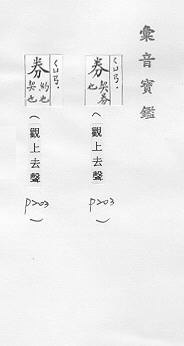 彙音寶鑑
ㄑㄩㄢˋ
券 契券也
(觀上去聲
P203
)
ㄑㄩㄢˋ
券 約也契也
(觀上去聲
P203
)